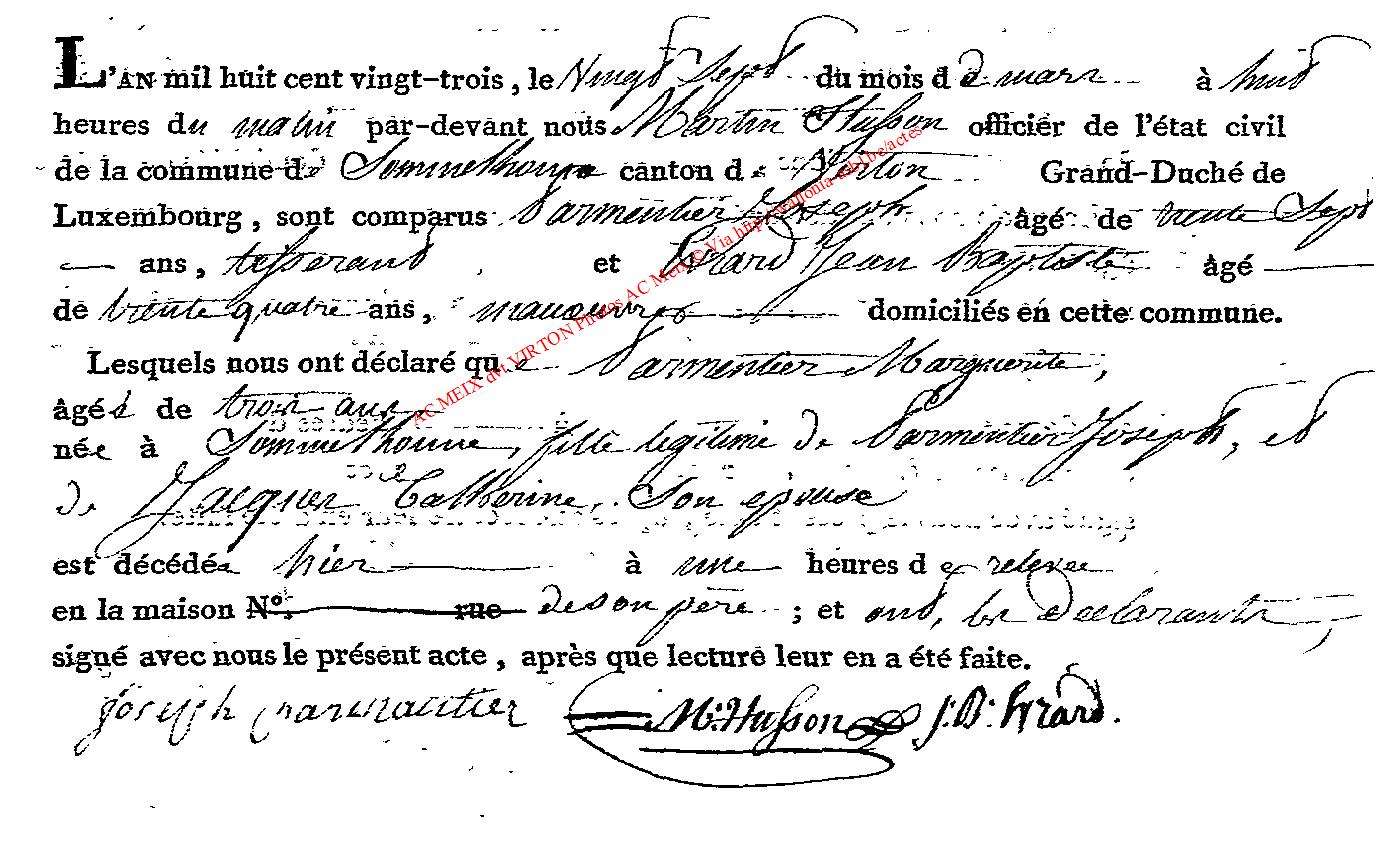 L'AN mil huit cent vingt-trois, le Vingt Sept du mois de mars à huit
heures du matin par-devant nous Martin Husson officier de l'état civil
de la commune de Sommethonne canton de Virton Grand-Duché de
Luxembourg, sont comparus Parmentier Joseph âgé de trente Sept
ans, tisserand et Gérard Jean Baptiste âgé
de trente quatre ans, manouvre domiciliés en cette commune.
Lesquels nous ont déclaré que Parmentier Marguerite,
âgée de trois ans
née à Sommethonne, fille legitime de Parmentier Joseph, et
de Jacques Catherine, Son epouse
est décédée hier à une heures de relevee
en la maison N°. rue de son père ; et ont, les declarants,
signé avec nous le présent acte, après que lecture leur en a été faite.
joseph parmantier M. Husson J. B. Gérard.
AC MEIX dvt VIRTON Photos AC Meix © Via